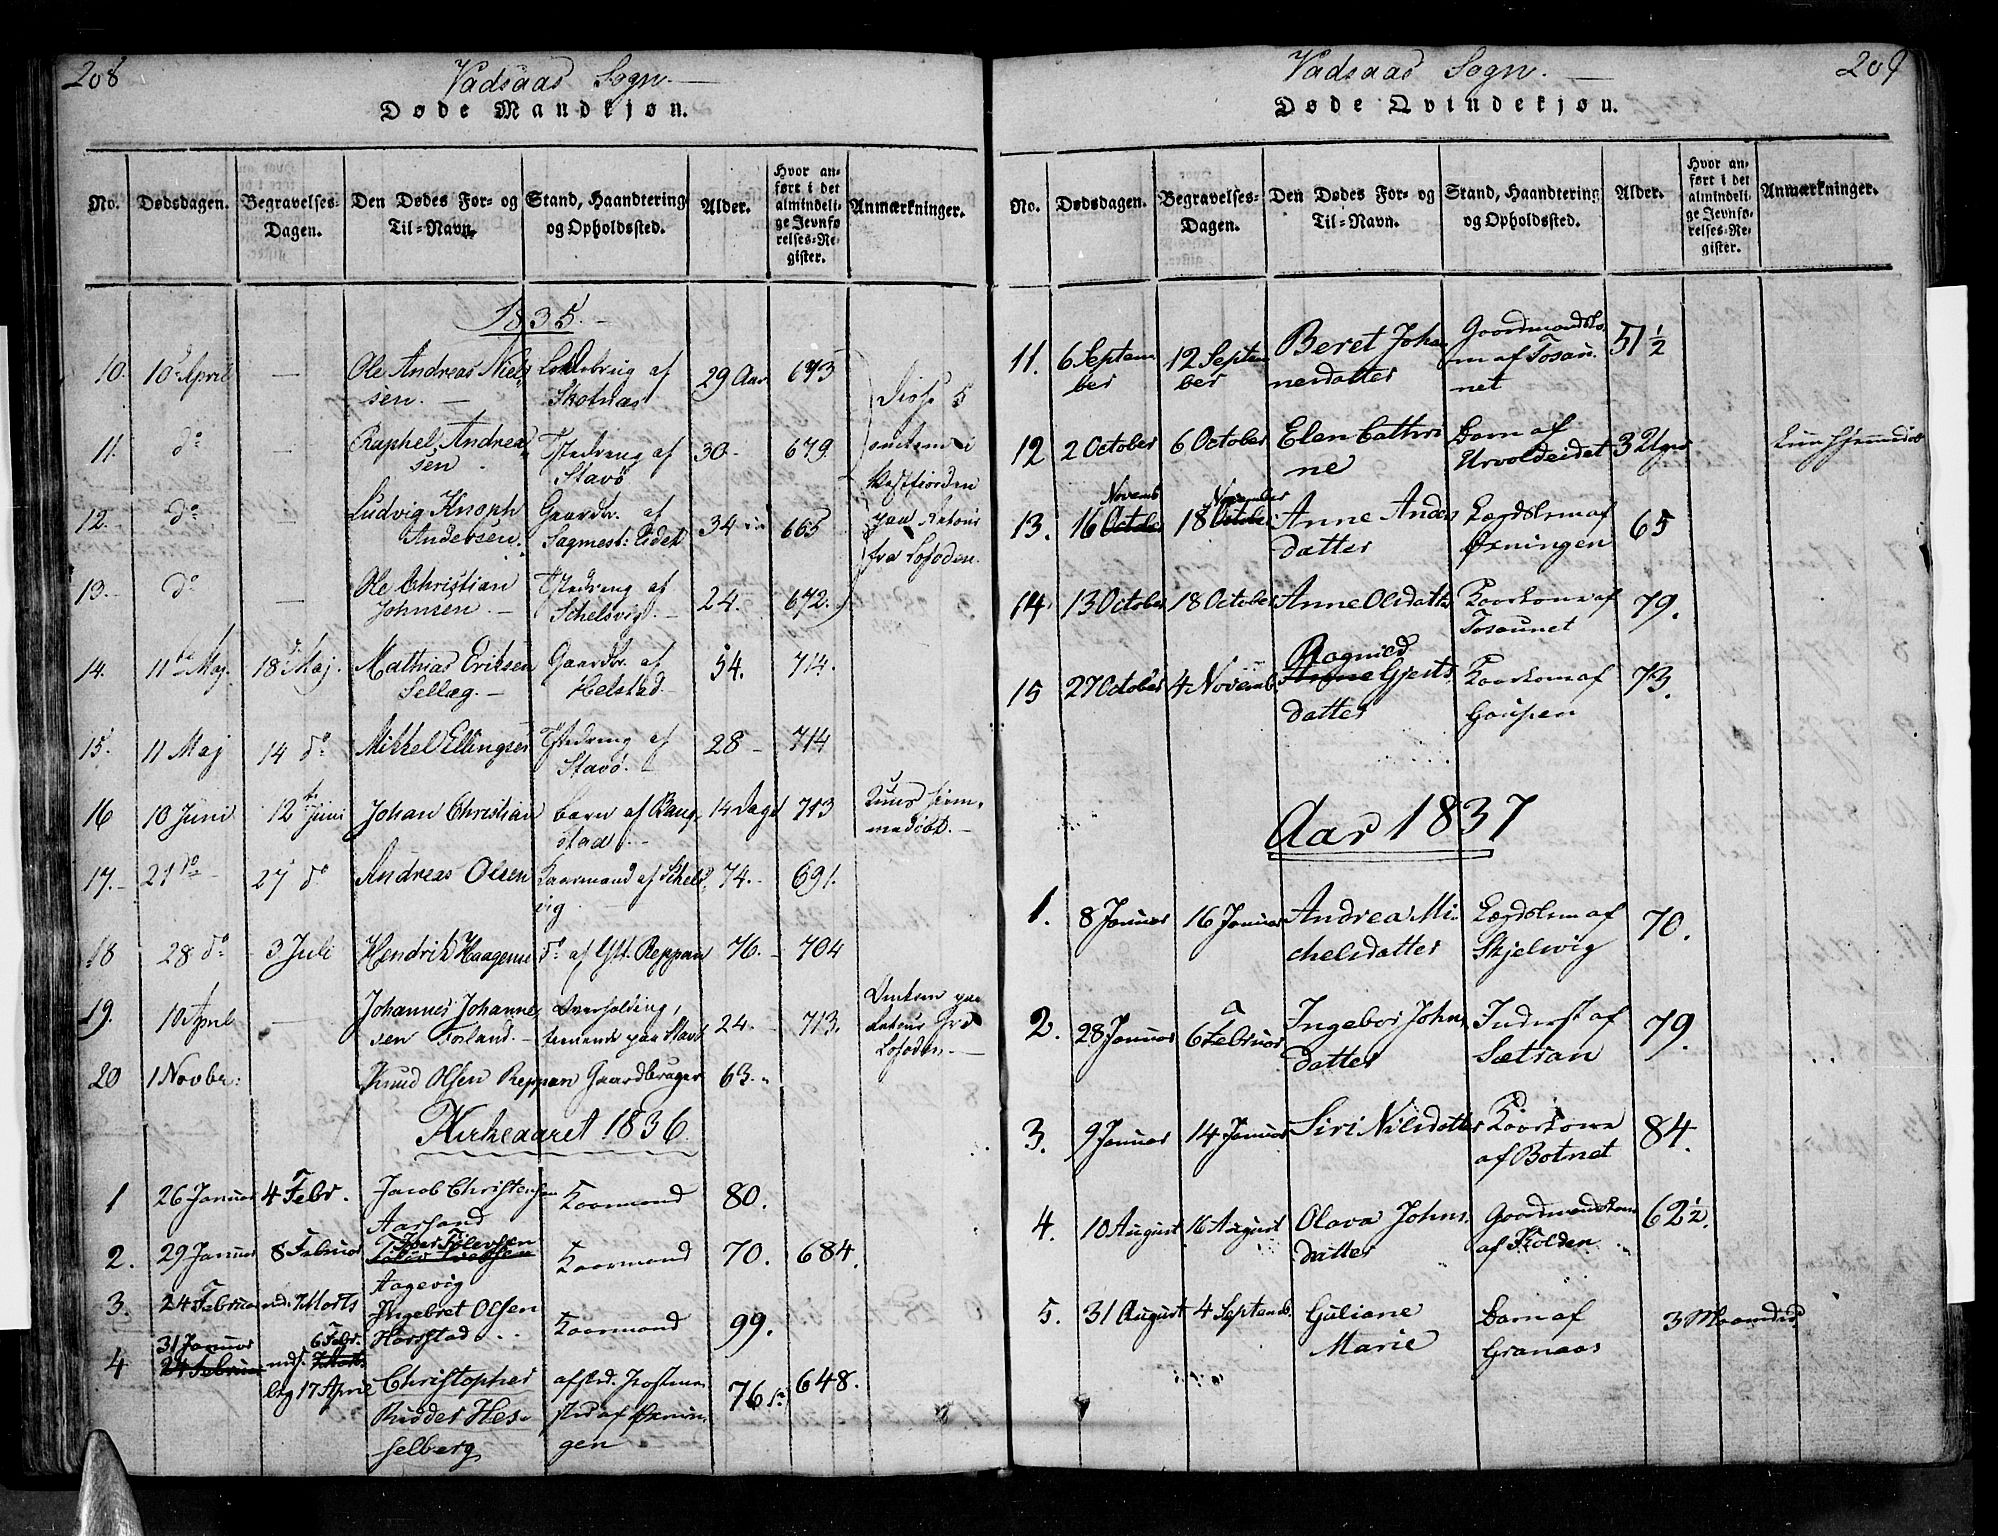 208
Vadsaas Sogn.
Døde Mandkjøn.
No. Dødsdagen. Begravelses-Dagen. Den Dødes For- og Til-Navn. Stand, Haandtering og Opholdssted. Alder. Hvor anført i det almindelige Jevnførelses-Register. Anmærkninger.
1835.
10. 10 April — Ole Andreas Niels
sen. Skotnas 29 Aar 673
11. do — Raphel Andrea
sen af Stavø 30 679
12. do — Ludvig Knoph
Andersen Gaardbr. af Sagmest: Eidet 34 665
Disse 5
omkom i
Vestfiorden
paa Retour
fra Lofoden.
13. do — Ole Christian
Johnsen af Schelsvig 24. 672.
14. 11te Maj. 18 Maj. Mathias Eriksen
Sellæg. Gaardbr. af Helstad 54. 714.
15. 11 Maj 14 do Mikkel Ellingsen af Stavø. 28 714
16 10 Juni 12 Juni Johan Christian barn af Baug
stad 14 Dage 713 hiem
medøbt.
17. 21 do 27 do Andreas Olsen Kaarmand af Schels
vig 74. 691.
18 28 do 3 Juli Hendrik Haagens do af Reppen 76. 704
19. 10 April — Johannes Johanne
sen Forland. paa Stavø 24 713. Omkom paa
Retour fra
Lofoden.
20 1 Novbr: Knud Olsen Reppen Gaardbruger 63.
Kirkeaaret 1836.
1 26 Januar 4 Febr. Jacob Christensen
Aarsand Kaarmand 80.
2. 29 Januar 8 Februar
Aagevig Kaarmand 70. 684.
3. 24 Februar 7 Marts Ingebret Olsen
Horstad Kaarmand 99.
4 31 Januar 6 Febr.
24 Februar
beg 17 April Christopher
Ridder Hes
selberg afsked. af Øxnin
gen 76 648.
Vadsaas Sogn.
209
Døde Qvindekjøn.
No. Dødsdagen. Begravelses-Dagen. Den Dødes For- og Til-Navn. Stand, Haandtering og Opholdssted. Alder. Hvor anført i det almindelige Jevnførelses-Register. Anmærkninger.
11. 6 Septem
ber 12 Septem
ber Beret Joha
nesdatter Gaardmandsko
ne af Tosau
net 51 1/2
12 2 October 6 October Elen Cathri
ne Barn af
Urvoldeidet 3 Uger
13. Novemb
16 Octobe November
18 Octobe Anne Anders
datter af
Øxningen 65
14. 13 October 18 October Anne Olsdatter Kaarkone af
Tosaunet 79.
15 27 October 4 Novemb. Ragnild
Anne Gjerts
datter Kaarkone af
Gaupen 73.
Aar 1837
1. 8 Januar 16 Januar Andrea Mi
chelsdatter af
Skjelvig 70.
2. 28 Januar 6 Februar Ingebor Johns
datter Inderst af
Sætran 79.
3. 9 Januar 14 Januar Siri Nilsdatter Kaarkone
af Botnet 84.
4. 10 August 16 August Olava Johns
datter Gaardmandskone
af Kolden 62 1/2.
5. 31 August 4 Septemb. Guliane
Marie Barn af
Granaas 3 Maaneder